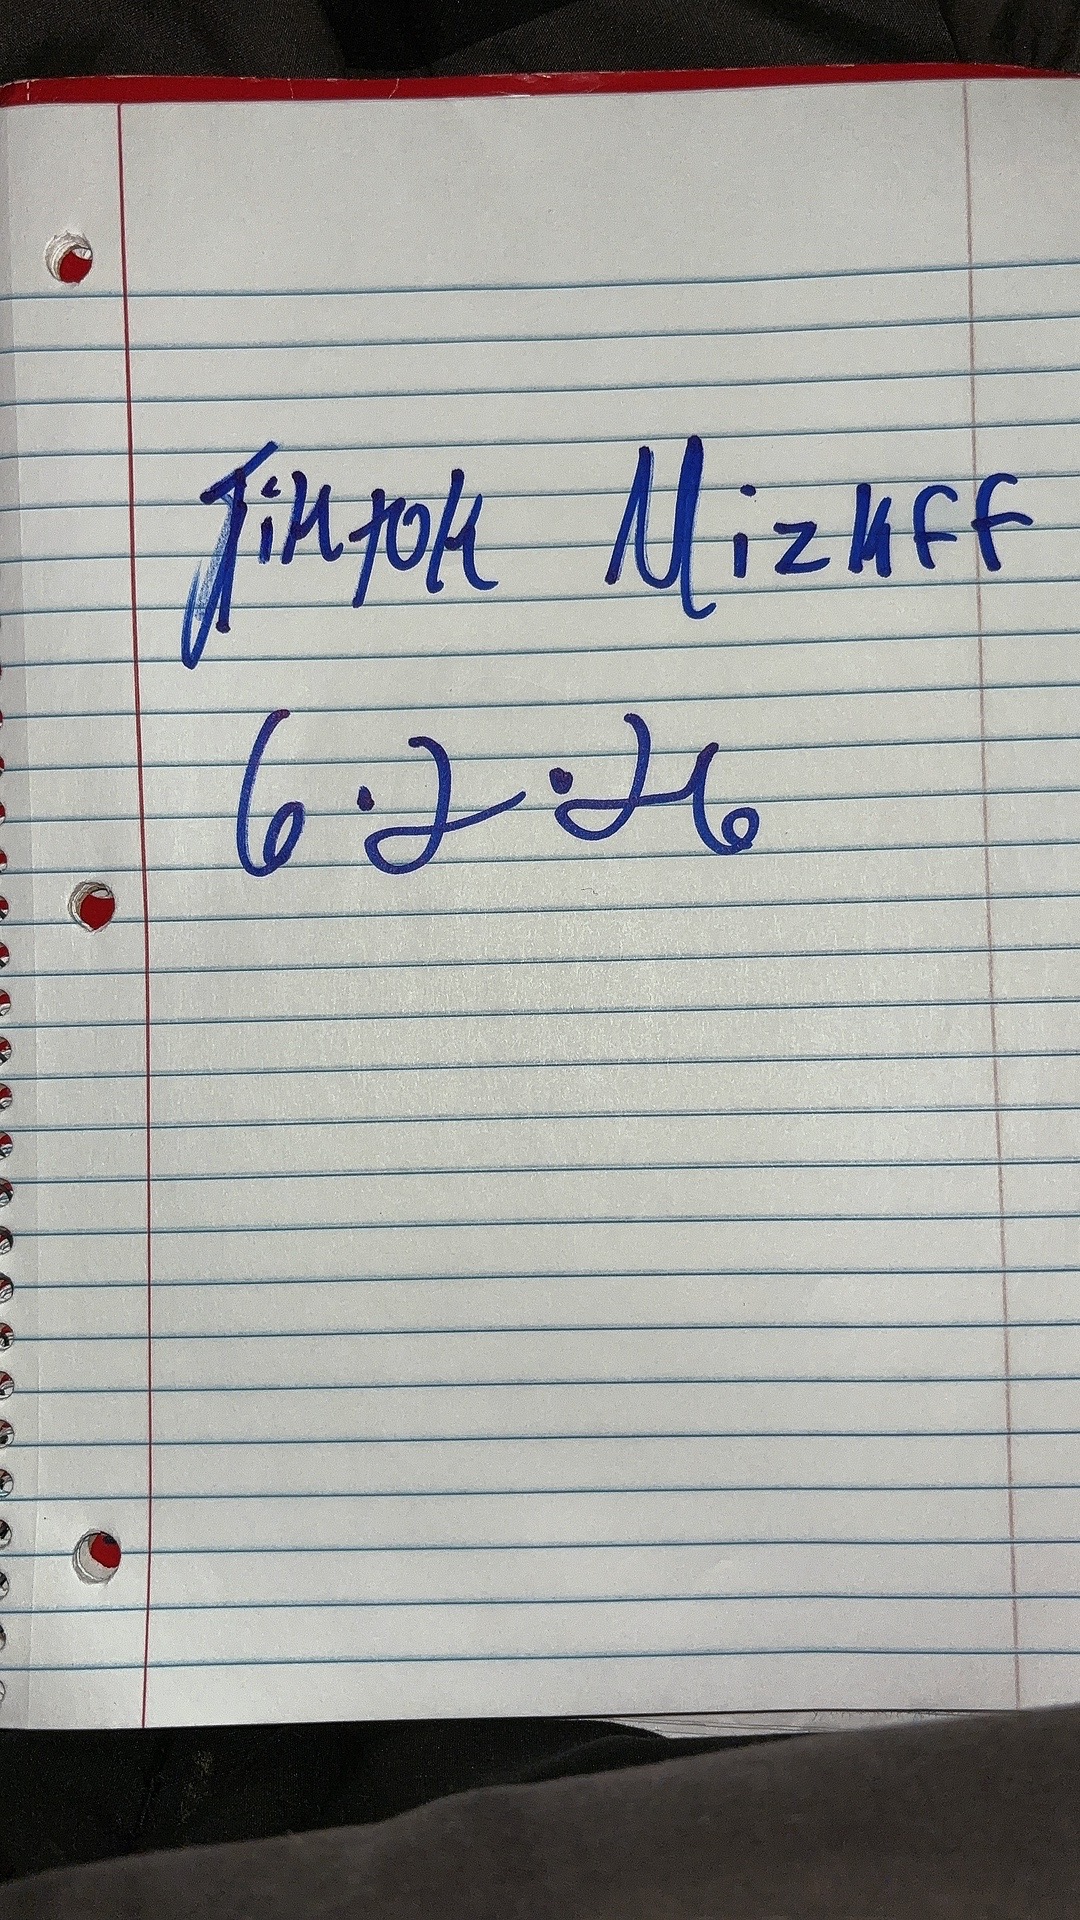 Tiktok Mizkff
6.2.26